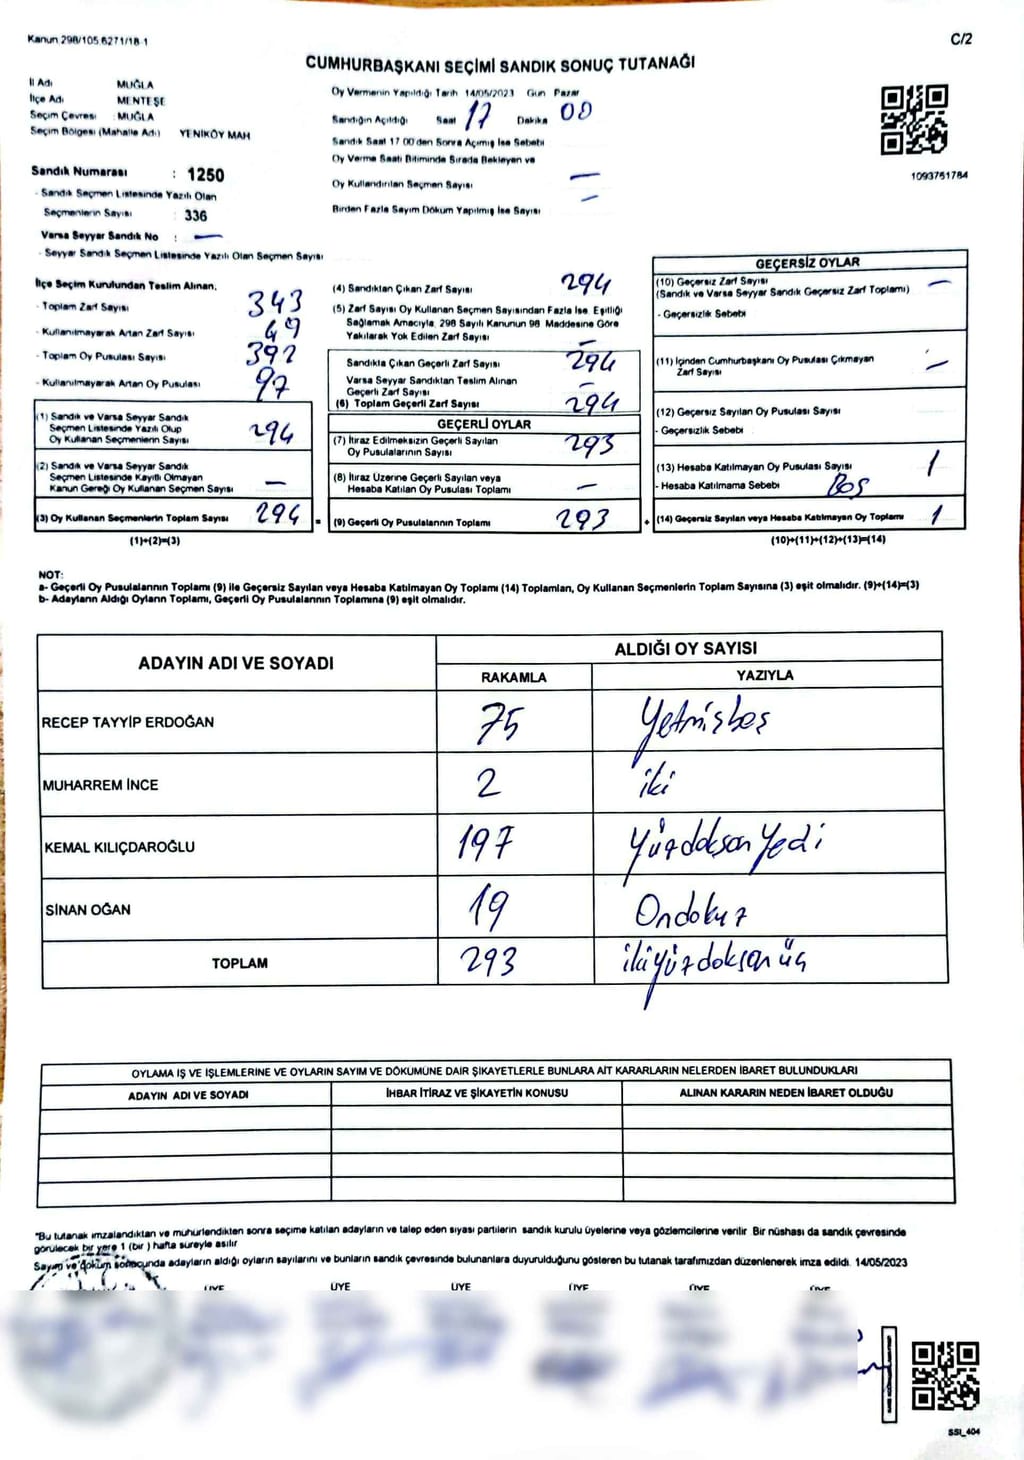 Kanun 298/105.6271/18-1
C/2
CUMHURBAŞKANI SEÇİMİ SANDIK SONUÇ TUTANAĞI
İl Adı MUĞLA
İlçe Adı MENTEŞE
Seçim Çevresi : MUĞLA
Seçim Bölgesi (Mahalle Adı) YENİKÖY MAH
Sandık Numarası : 1250
- Sandık Seçmen Listesinde Yazılı Olan
Seçmenlerin Sayısı : 336
Varsa Seyyar Sandık No : —
- Seyyar Sandık Seçmen Listesinde Yazılı Olan Seçmen Sayısı
Oy Vermenin Yapıldığı Tarih 14/05/2023 Gün Pazar
Sandığın Açıldığı Saat 17 Dakika 00
Sandık Saat 17 00'den Sonra Açımış İse Sebebi
Oy Verme Saati Bitiminde Sırada Bekleyen ve
Oy Kullandırılan Seçmen Sayısı —
Birden Fazla Sayım Döküm Yapılmış İse Sayısı —
1093751784
İlçe Seçim Kurulundan Teslim Alınan;
- Toplam Zarf Sayısı 343
- Kullanılmayarak Artan Zarf Sayısı 49
- Toplam Oy Pusulası Sayısı 392
- Kullanılmayarak Artan Oy Pusulası 97
(1) Sandık ve Varsa Seyyar Sandık
Seçmen Listesinde Yazılı Olup
Oy Kullanan Seçmenlerin Sayısı 294
(2) Sandık ve Varsa Seyyar Sandık
Seçmen Listesinde Kayıtlı Olmayan
Kanun Gereği Oy Kullanan Seçmen Sayısı —
(3) Oy Kullanan Seçmenlerin Toplam Sayısı 294
(1)+(2)=(3)
(4) Sandıktan Çıkan Zarf Sayısı 294
(5) Zarf Sayısı Oy Kullanan Seçmen Sayısından Fazla İse, Eşitliği
Sağlamak Amacıyla, 298 Sayılı Kanunun 98. Maddesine Göre
Yakılarak Yok Edilen Zarf Sayısı —
Sandıkta Çıkan Geçerli Zarf Sayısı 294
Varsa Seyyar Sandıktan Teslim Alınan
Geçerli Zarf Sayısı —
(6) Toplam Geçerli Zarf Sayısı 294
GEÇERLİ OYLAR
(7) İtiraz Edilmeksizin Geçerli Sayılan
Oy Pusulalarının Sayısı 293
(8) İtiraz Üzerine Geçerli Sayılan veya
Hesaba Katılan Oy Pusulası Toplamı —
= (9) Geçerli Oy Pusulalarının Toplamı 293
GEÇERSİZ OYLAR
(10) Geçersiz Zarf Sayısı —
(Sandık ve Varsa Seyyar Sandık Geçersiz Zarf Toplamı)
- Geçersizlik Sebebi
(11) İçinden Cumhurbaşkanı Oy Pusulası Çıkmayan
Zarf Sayısı —
(12) Geçersiz Sayılan Oy Pusulası Sayısı
- Geçersizlik Sebebi
(13) Hesaba Katılmayan Oy Pusulası Sayısı 1
- Hesaba Katılmama Sebebi Boş
+ (14) Geçersiz Sayılan veya Hesaba Katılmayan Oy Toplamı 1
(10)+(11)+(12)+(13)=(14)
NOT:
a- Geçerli Oy Pusulalarının Toplamı (9) ile Geçersiz Sayılan veya Hesaba Katılmayan Oy Toplamı (14) Toplamları, Oy Kullanan Seçmenlerin Toplam Sayısına (3) eşit olmalıdır. (9)+(14)=(3)
b- Adayların Aldığı Oyların Toplamı, Geçerli Oy Pusulalarının Toplamına (9) eşit olmalıdır.
ADAYIN ADI VE SOYADI ALDIĞI OY SAYISI
RAKAMLA YAZIYLA
RECEP TAYYİP ERDOĞAN 75 Yetmişbeş
MUHARREM İNCE 2 iki
KEMAL KILIÇDAROĞLU 197 Yüzdoksan Yedi
SİNAN OĞAN 19 Ondokuz
TOPLAM 293 ikiyüzdoksan üç
OYLAMA İŞ VE İŞLEMLERİNE VE OYLARIN SAYIM VE DÖKÜMÜNE DAİR ŞİKAYETLERLE BUNLARA AİT KARARLARIN NELERDEN İBARET BULUNDUKLARI
ADAYIN ADI VE SOYADI İHBAR İTİRAZ VE ŞİKAYETİN KONUSU ALINAN KARARIN NEDEN İBARET OLDUĞU
"Bu tutanak imzalandıktan ve mühürlendikten sonra seçime katılan adayların ve talep eden siyasi partilerin sandık kurulu üyelerine veya gözlemcilerine verilir Bir nüshası da sandık çevresinde
görülecek bir yere 1 (bir ) hafta süreyle asılır
Sayım ve döküm sonucunda adayların aldığı oyların sayılarını ve bunların sandık çevresinde bulunanlara duyurulduğunu gösteren bu tutanak tarafımızdan düzenlenerek imza edildi. 14/05/2023
ÜYE ÜYE ÜYE ÜYE ÜYE ÜYE
SSI_404